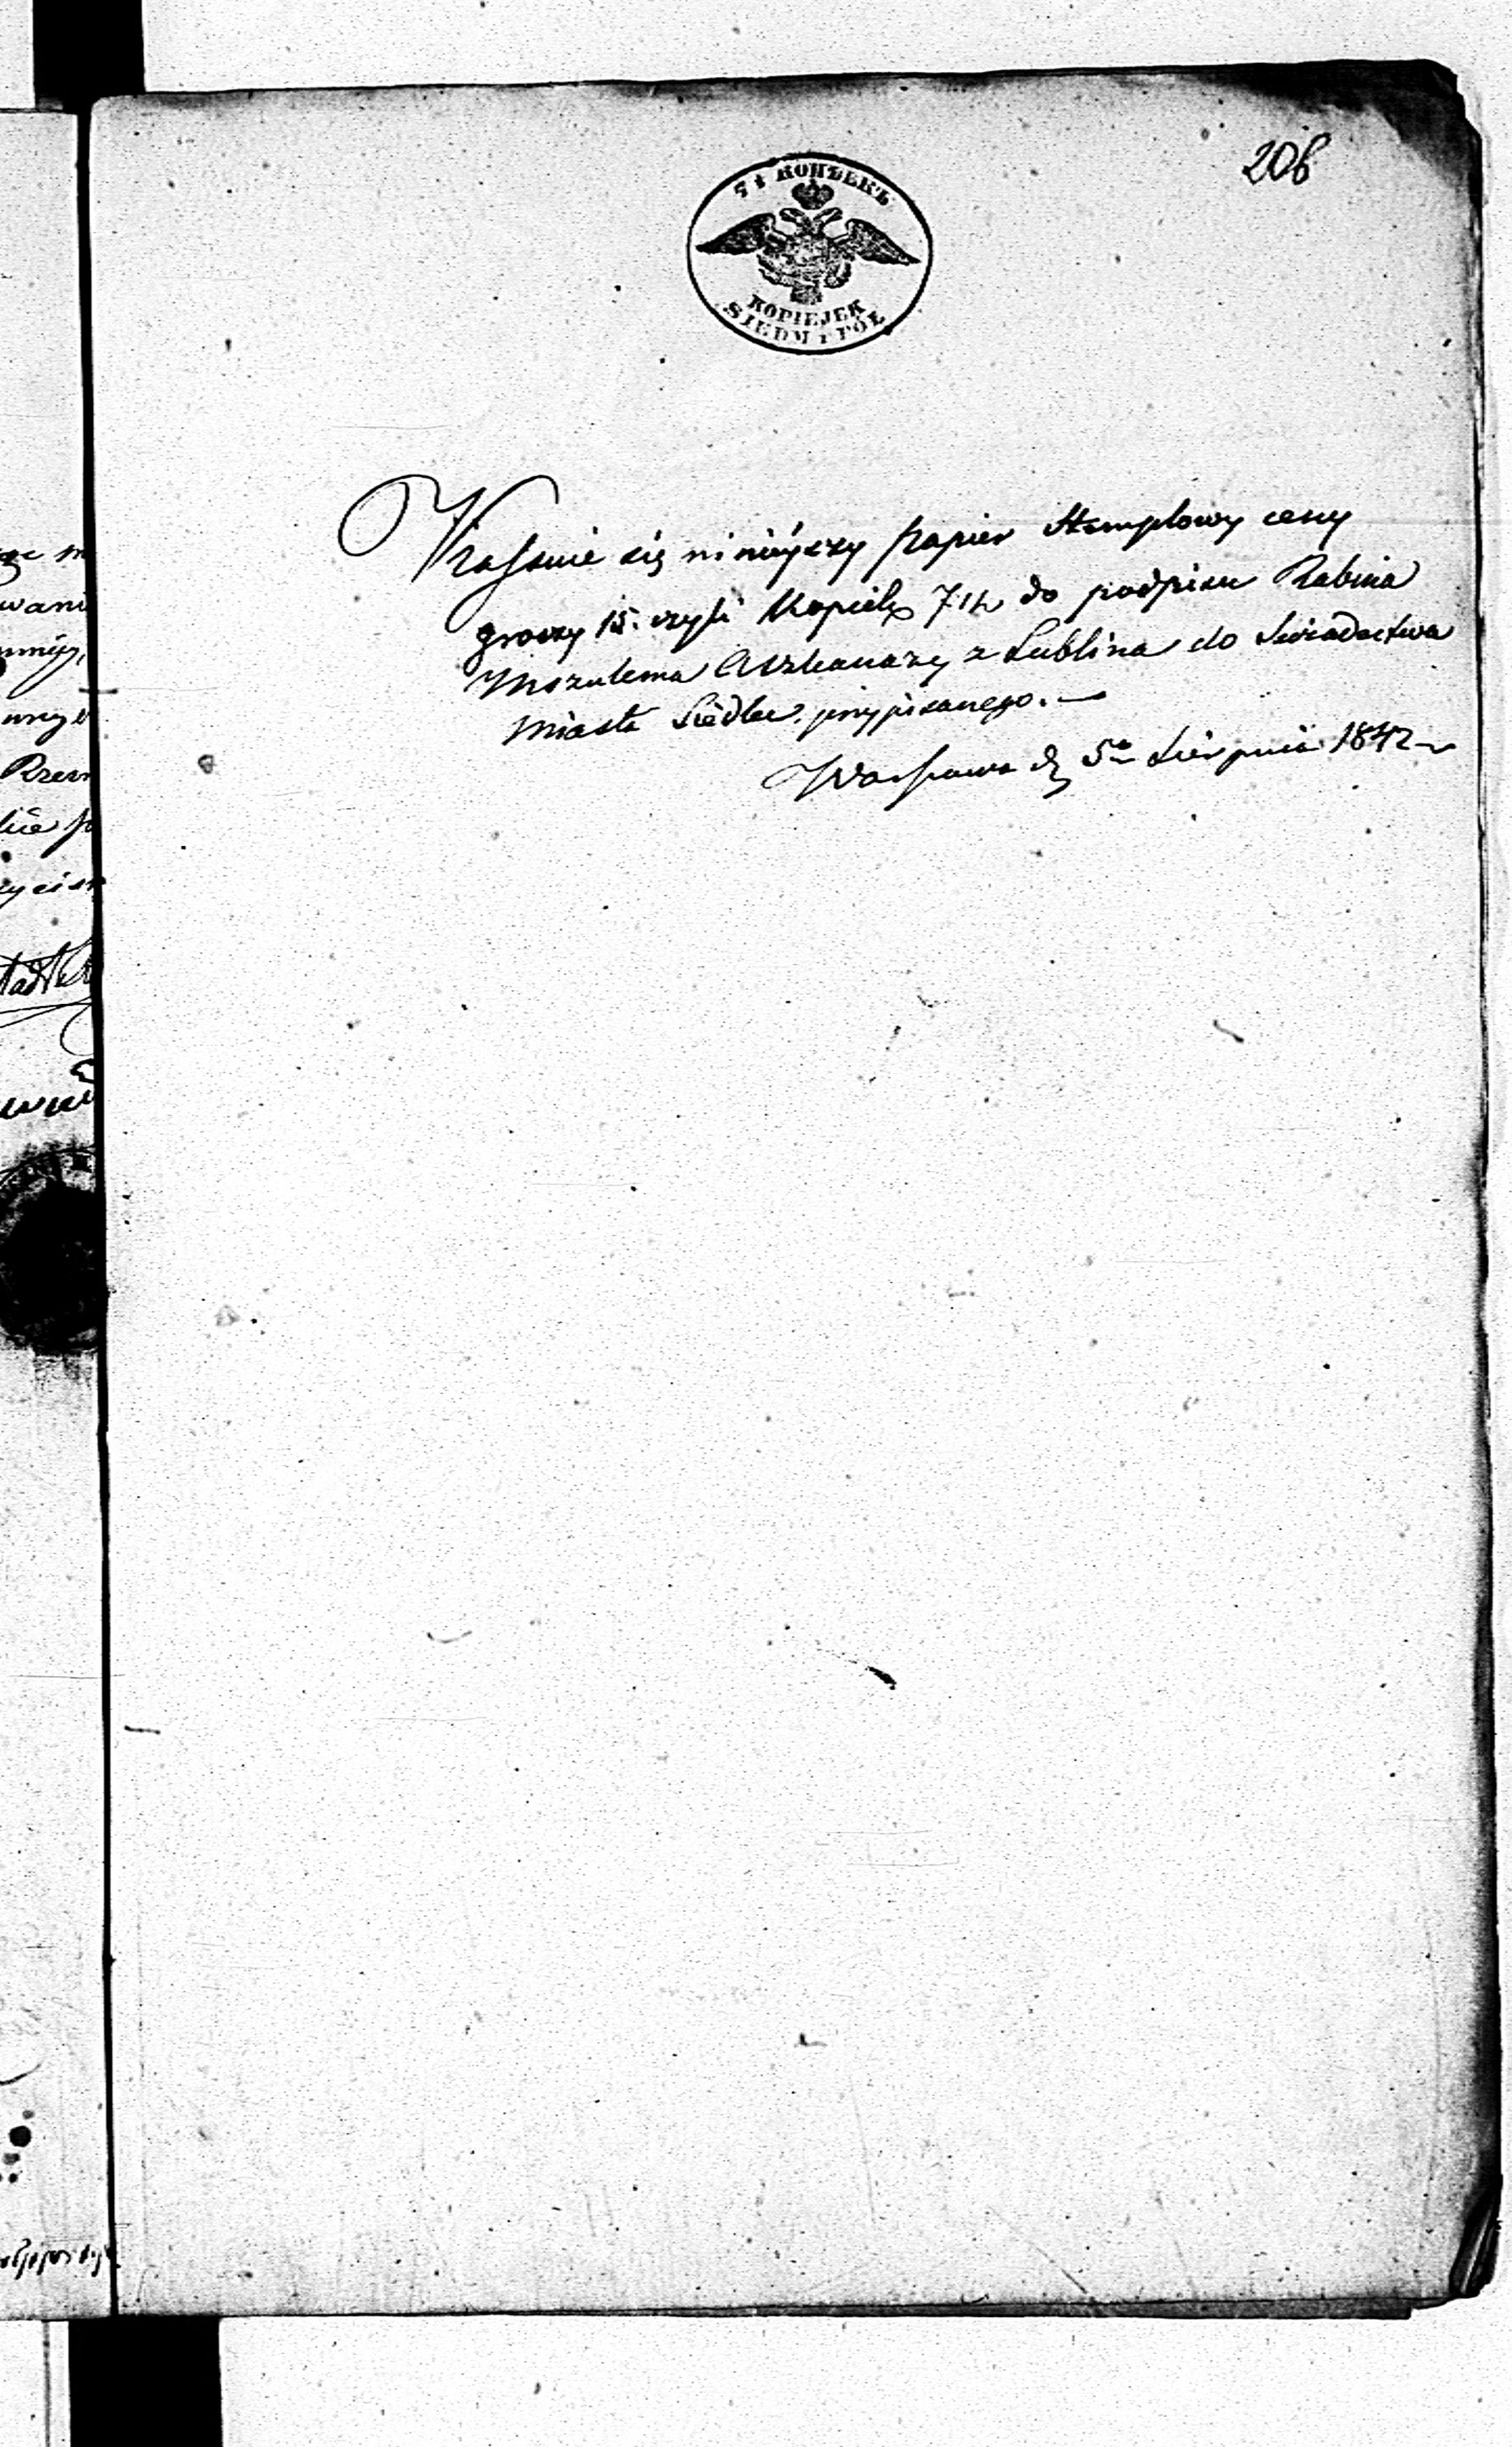 206
7½ КОПѢЕКЪ
KOPIEJEK
SIEDM i PÓŁ
Kassuie się ninieyszy papier Stemplowy ceny
groszy 15. czyli Kopiek 7½ do podpisu Rabina
Moszulema Aszkanazy z Lublina do Swiadectwa
Miasta Siedlec. przypisanego. —
Warszawa d 5° Sierpnia 1842